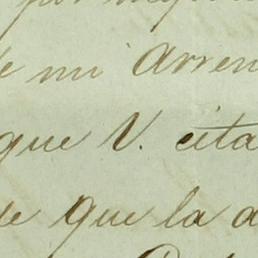 de mi Arren
que V. cita
de que la a